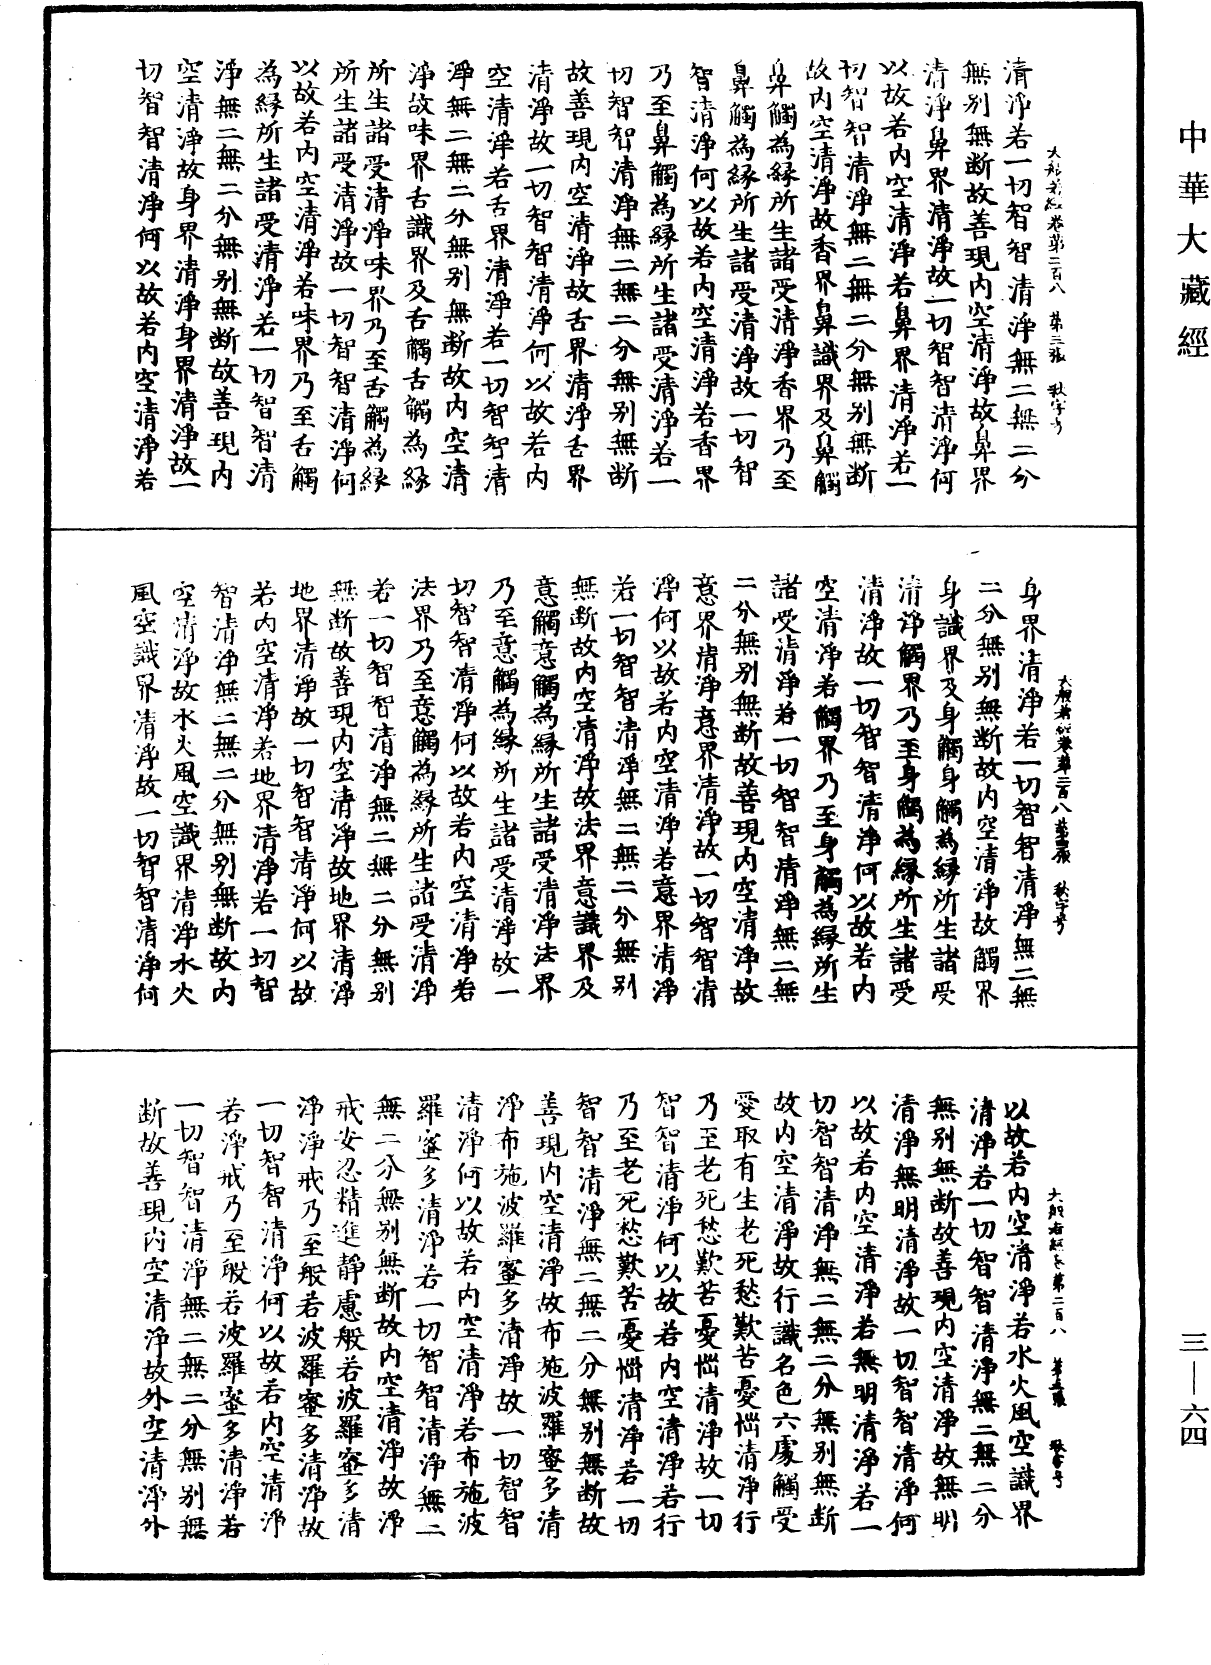 中華大藏經
大般若經卷第二百八 第三張 秋字号
清淨若一切智智清淨無二無二分
無別無斷故善現內空清淨故鼻界
清淨鼻界清淨故一切智智清淨何
以故若內空清淨若鼻界清淨若一
切智智清淨無二無二分無別無斷
故內空清淨故香界鼻識界及鼻觸
鼻觸為緣所生諸受清淨香界乃至
鼻觸為緣所生諸受清淨故一切智
智清淨何以故若內空清淨若香界
乃至鼻觸為緣所生諸受清淨若一
切智智清淨無二無二分無別無斷
故善現內空清淨故舌界清淨舌界
清淨故一切智智清淨何以故若內
空清淨若舌界清淨若一切智智清
淨無二無二分無別無斷故內空清
淨故味界舌識界及舌觸舌觸為緣
所生諸受清淨味界乃至舌觸為緣
所生諸受清淨故一切智智清淨何
以故若內空清淨若味界乃至舌觸
為緣所生諸受清淨若一切智智清
淨無二無二分無別無斷故善現內
空清淨故身界清淨身界清淨故一
切智智清淨何以故若內空清淨若
大般若經卷第二百八 第四張 秋字号
身界清淨若一切智智清淨無二無
二分無別無斷故內空清淨故觸界
身識界及身觸身觸為緣所生諸受
清淨觸界乃至身觸為緣所生諸受
清淨故一切智智清淨何以故若內
空清淨若觸界乃至身觸為緣所生
諸受清淨若一切智智清淨無二無
二分無別無斷故善現內空清淨故
意界清淨意界清淨故一切智智清
淨何以故若內空清淨若意界清淨
若一切智智清淨無二無二分無別
無斷故內空清淨故法界意識界及
意觸意觸為緣所生諸受清淨法界
乃至意觸為緣所生諸受清淨故一
切智智清淨何以故若內空清淨若
法界乃至意觸為緣所生諸受清淨
若一切智智清淨無二無二分無別
無斷故善現內空清淨故地界清淨
地界清淨故一切智智清淨何以故
若內空清淨若地界清淨若一切智
智清淨無二無二分無別無斷故內
空清淨故水火風空識界清淨水火
風空識界清淨故一切智智清淨何
大般若經卷第二百八 第五張 秋字号
以故若內空清淨若水火風空識界
清淨若一切智智清淨無二無二分
無別無斷故善現內空清淨故無明
清淨無明清淨故一切智智清淨何
以故若內空清淨若無明清淨若一
切智智清淨無二無二分無別無斷
故內空清淨故行識名色六處觸受
愛取有生老死愁歎苦憂惱清淨行
乃至老死愁歎苦憂惱清淨故一切
智智清淨何以故若內空清淨若行
乃至老死愁歎苦憂惱清淨若一切
智智清淨無二無二分無別無斷故
善現內空清淨故布施波羅蜜多清
淨布施波羅蜜多清淨故一切智智
清淨何以故若內空清淨若布施波
羅蜜多清淨若一切智智清淨無二
無二分無別無斷故內空清淨故淨
戒安忍精進靜慮般若波羅蜜多清
淨淨戒乃至般若波羅蜜多清淨故
一切智智清淨何以故若內空清淨
若淨戒乃至般若波羅蜜多清淨若
一切智智清淨無二無二分無別無
斷故善現內空清淨故外空清淨外
三—六四